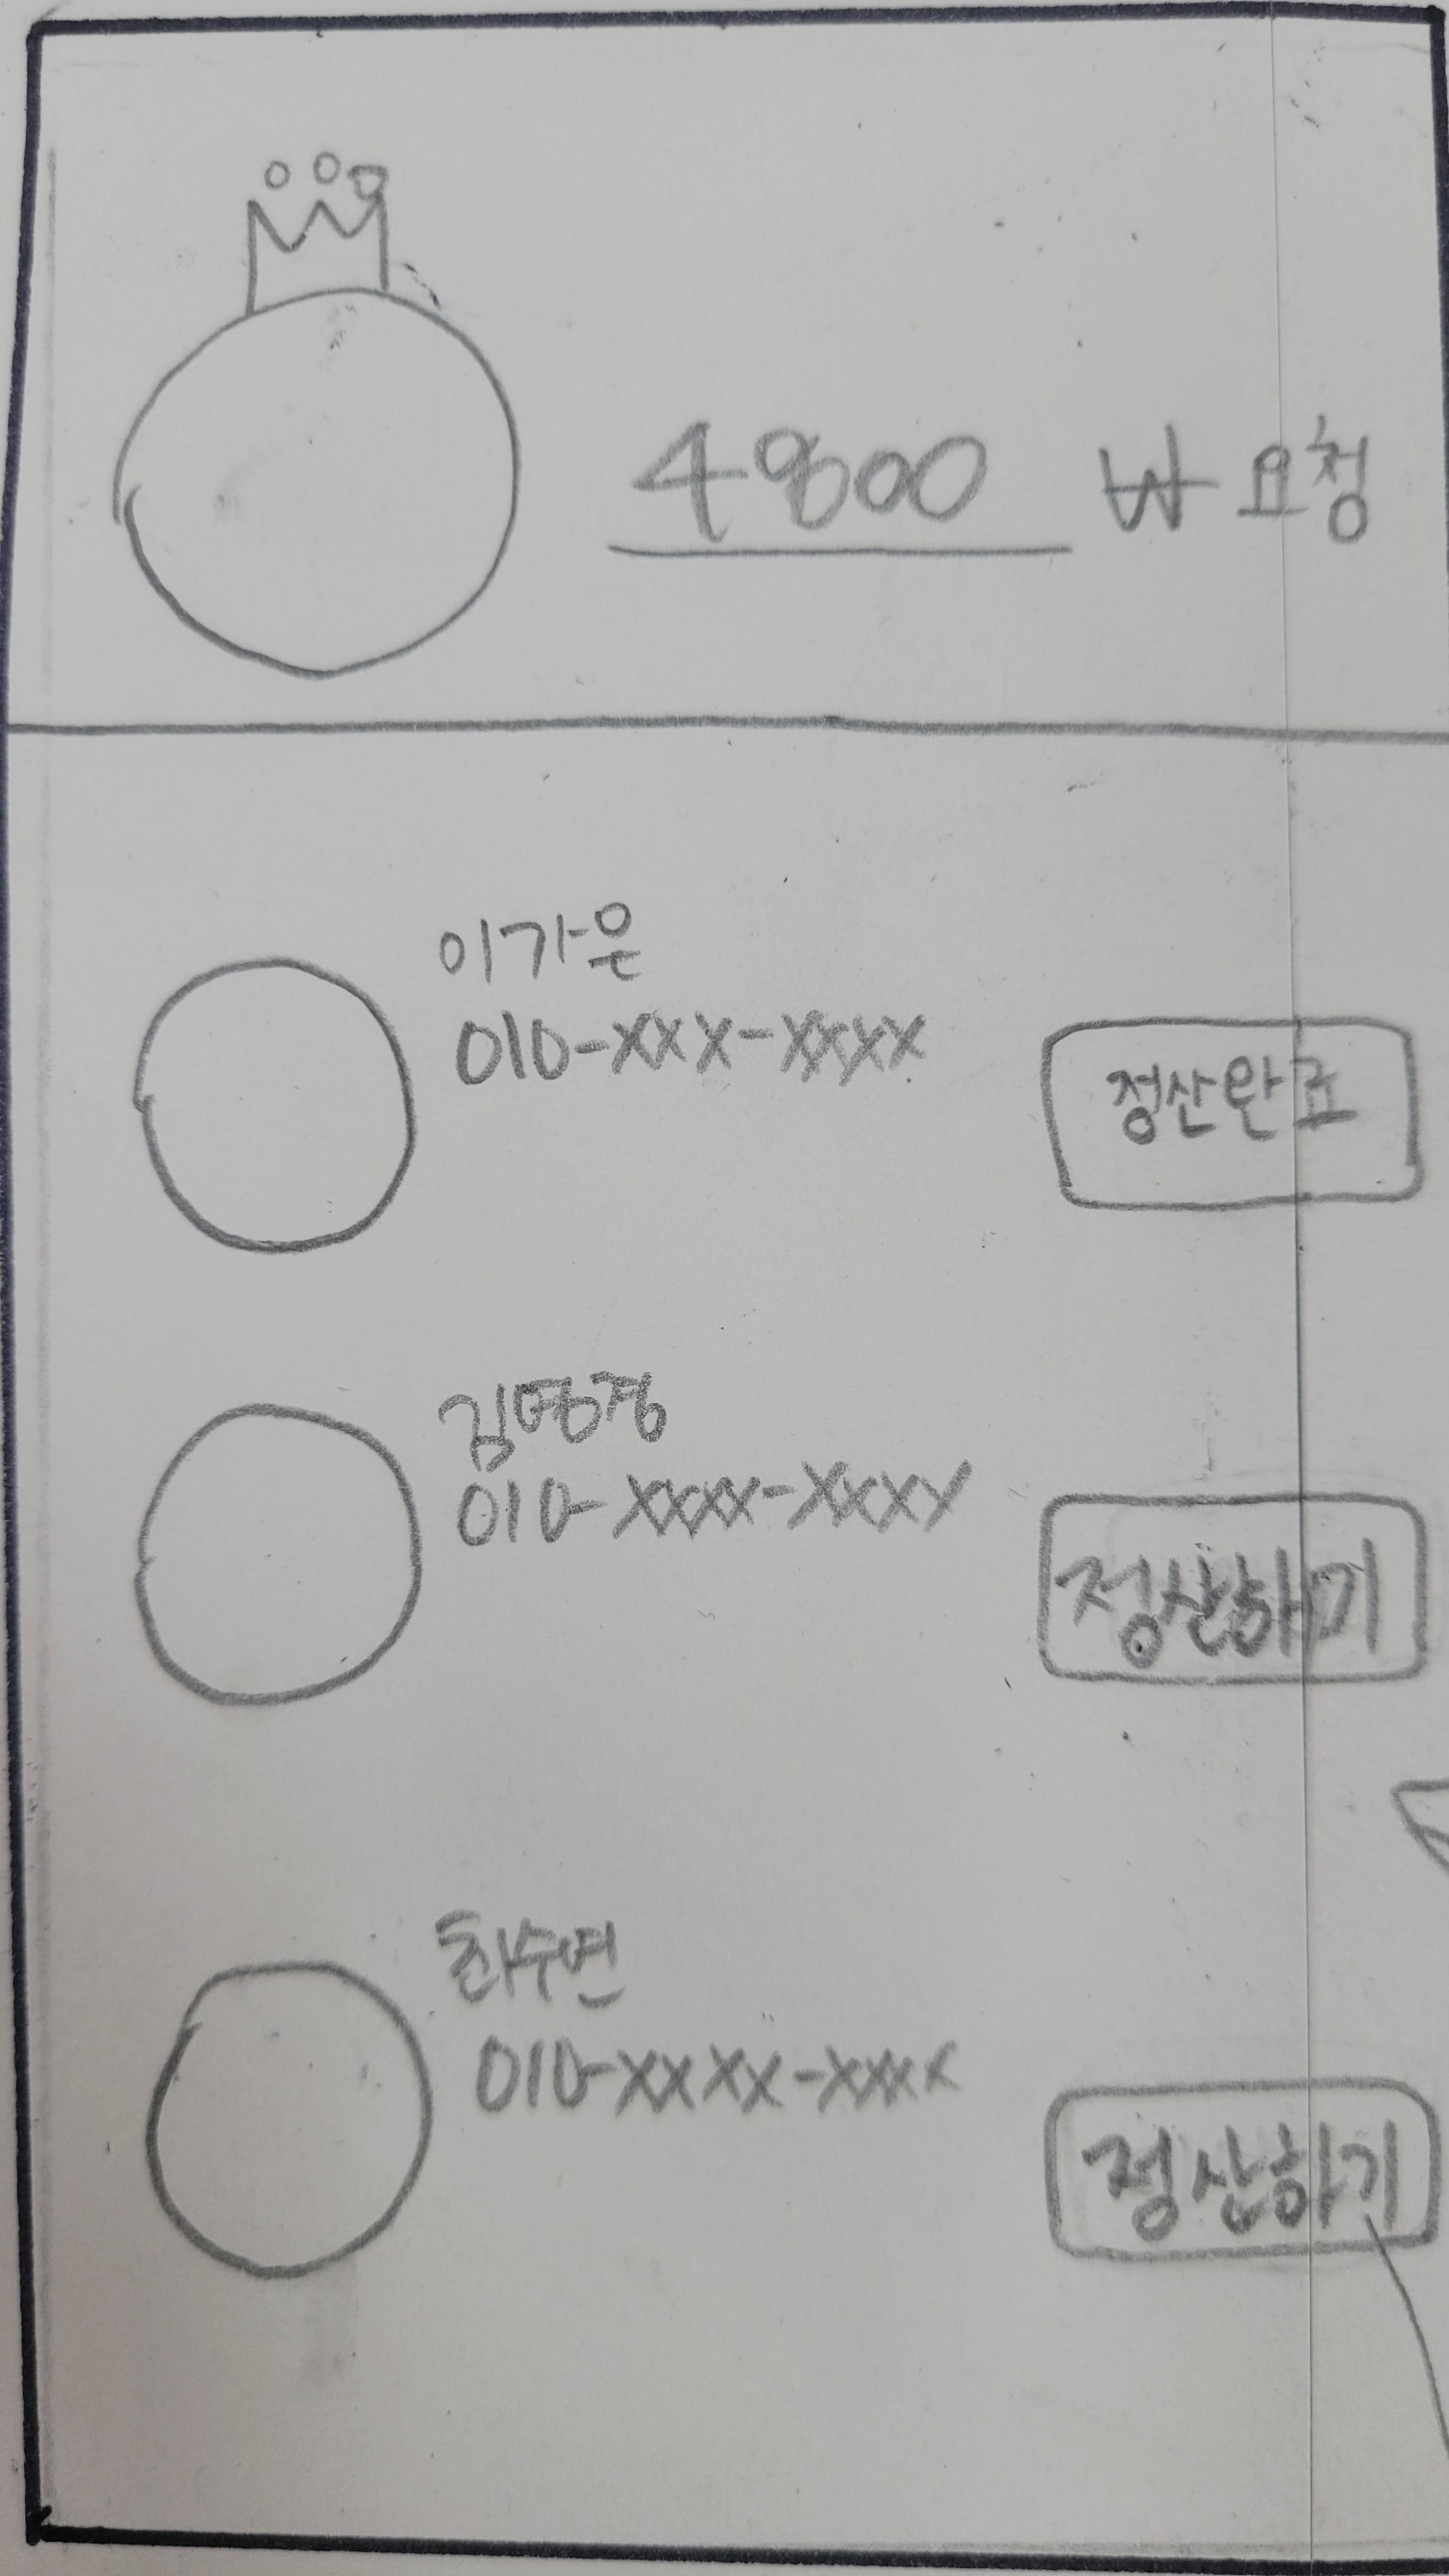 4800 ₩ 요청
이가은
010-xxx-xxxx
정산완료
010-xxxx-xxxx
정산하기
010-xxxx-xxxx
정산하기